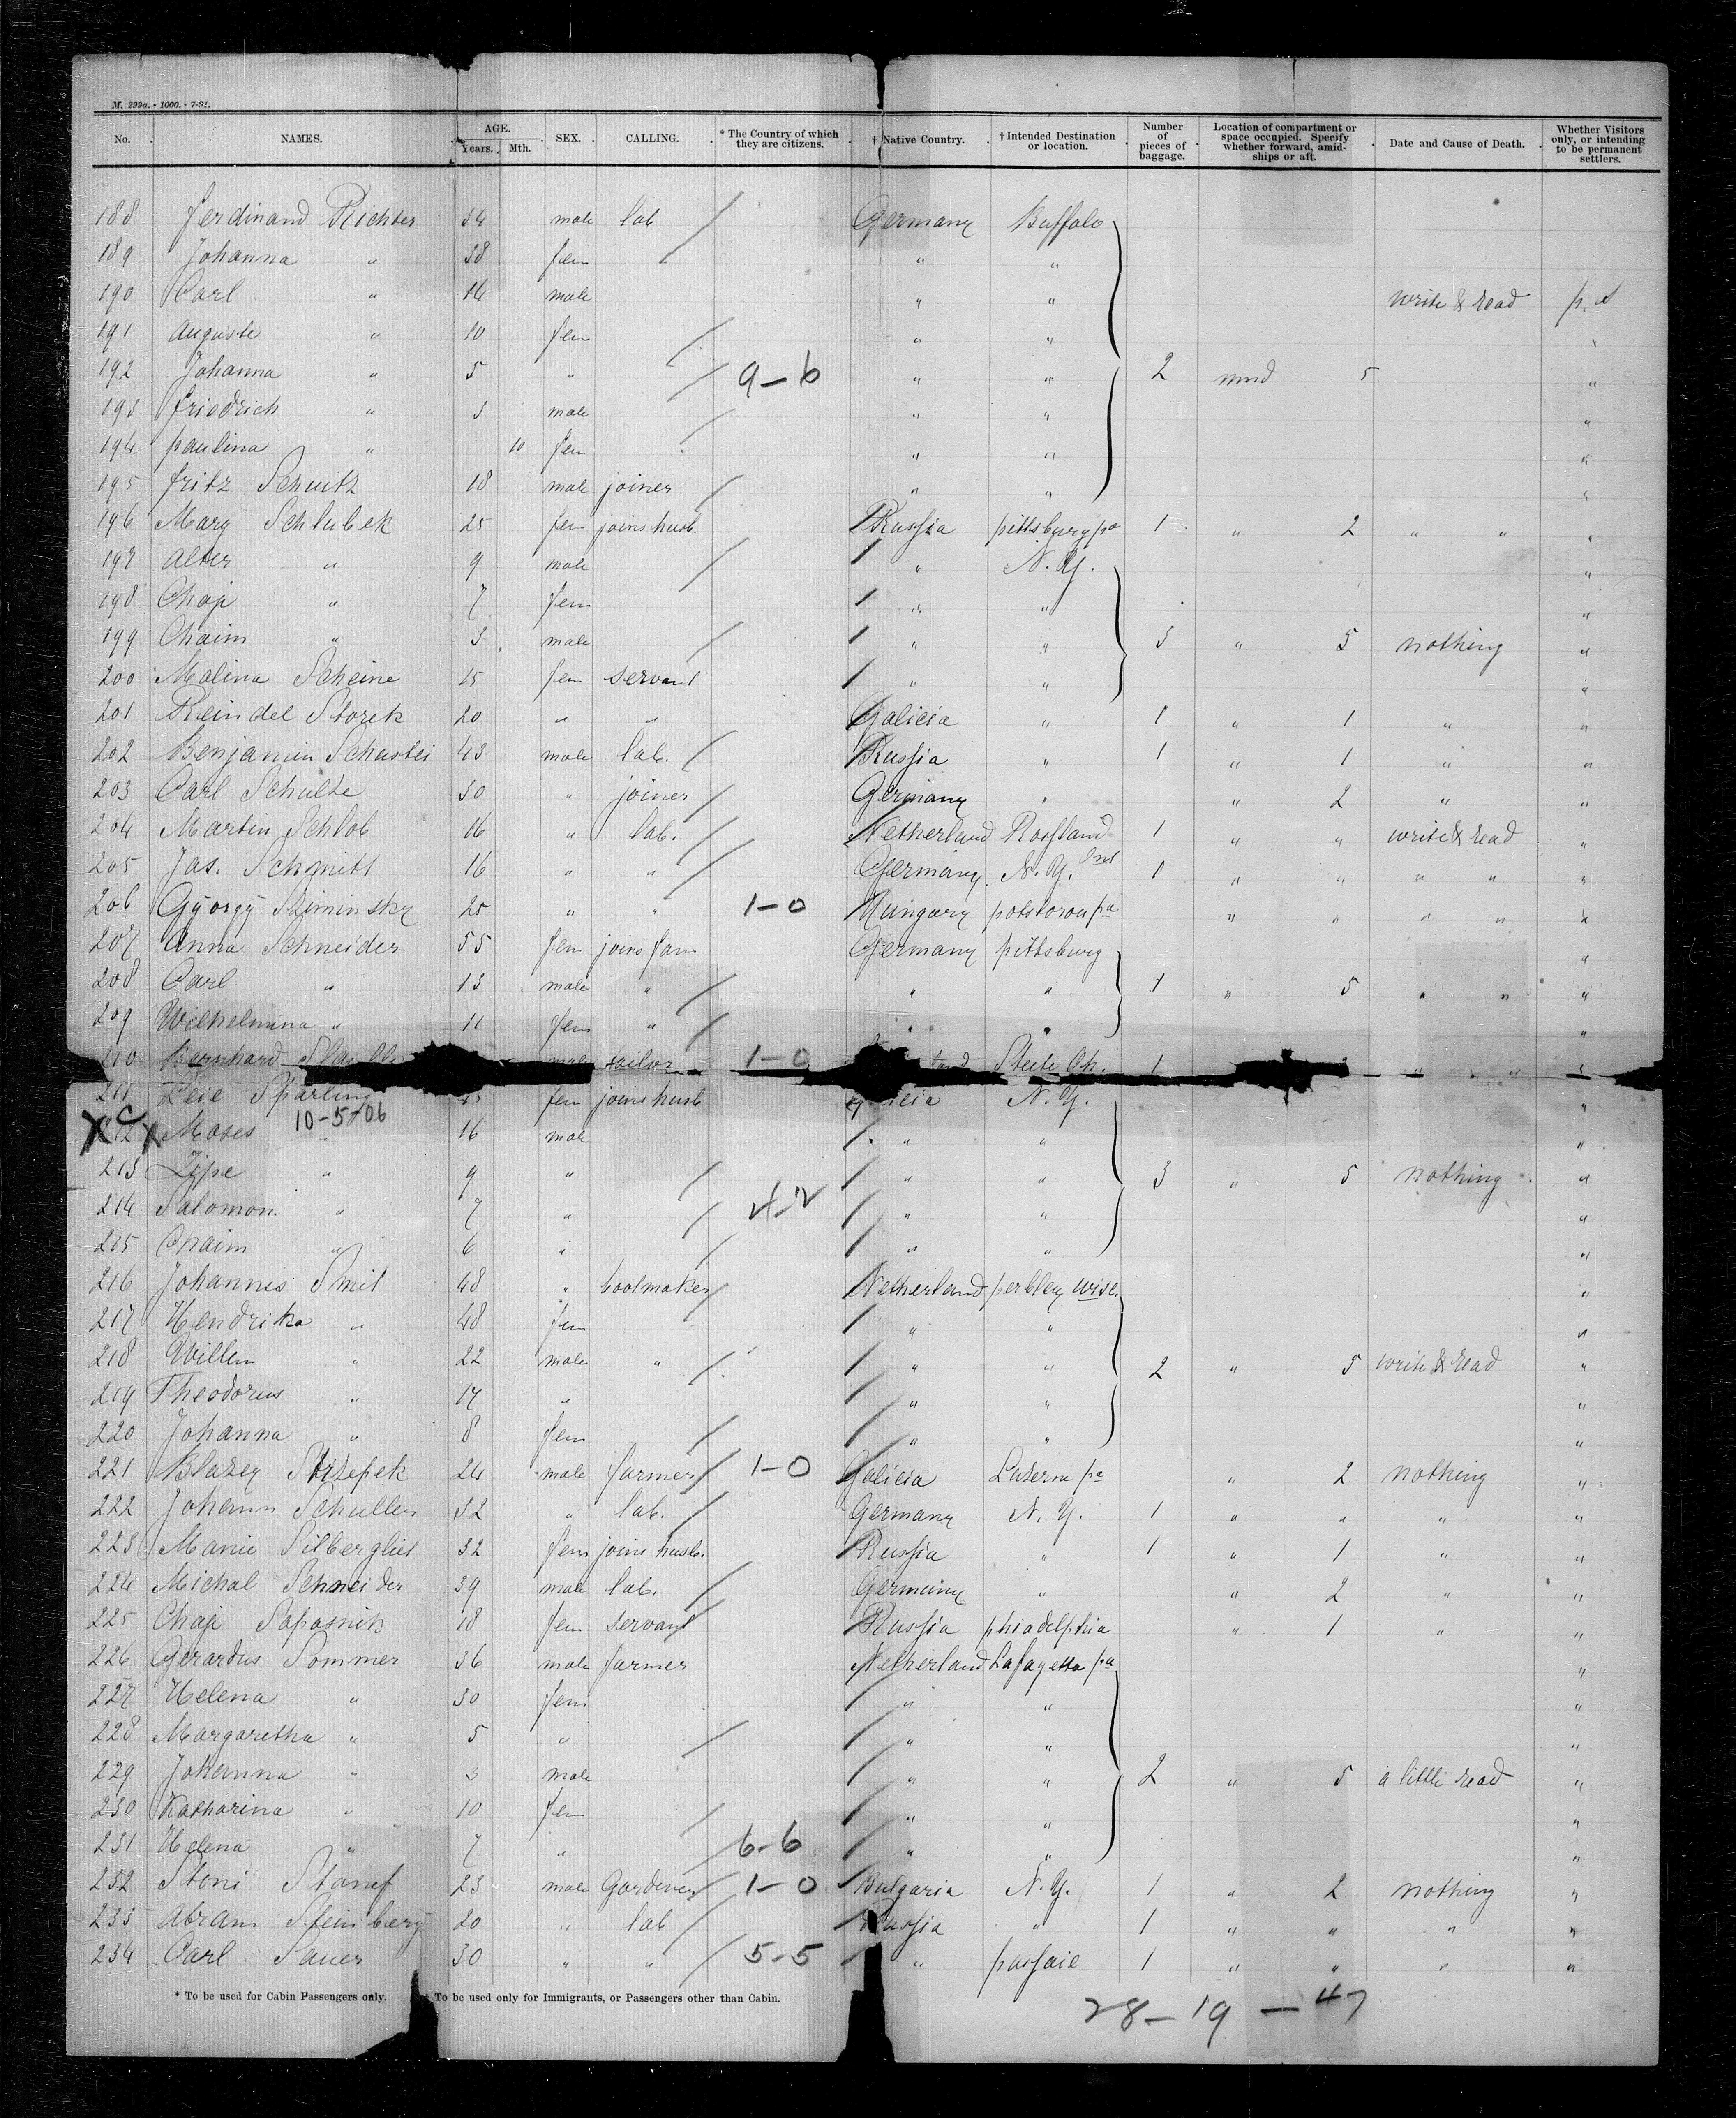 M. 299a. - 1000. - 7-91.
No. NAMES. AGE. Years. Mth. SEX. CALLING. * The Country of which they are citizens. † Native Country. † Intended Destination or location. Number of pieces of baggage. Location of compartment or space occupied. Specify whether forward, amidships or aft. Date and Cause of Death. Whether Visitors only, or intending to be permanent settlers.
188 Ferdinand Richter 34 male lab Germany Buffalo
189 Johanna " 38 fem " "
190 Carl " 14 male " " write & read p. s
191 Auguste " 10 fem " " "
192 Johanna " 5 " 9-6 " " 2 5 "
193 Friedrich " 3 male " " "
194 paulina " 10 fem " " "
195 Fritz 18 male joiner " " "
196 Mary Schlubek 25 fem joins husb. Russia pittsburg pa 1 " 2 " " "
197 Alter " 9 male " N. Y. "
198 Chaje " 7 fem " " "
199 Chaim " 3 male " " 3 " 5 nothing "
200 Malina Scheine 15 fem servant " " "
201 Reindel Storek 20 " " Galicia " 1 " 1 " "
202 Benjamin 43 male lab. Russia " 1 " 1 " "
203 Carl Schulte 30 " joiner Germany " " 2 " "
204 Martin Schlob 16 " lab. Netherland 1 " " write & read "
205 Jas. Schmitt 16 " " Germany N. Y. 1 " " " " "
206 György 25 " " 1-0 Hungary pa " " " " "
207 Anna Schneider 55 fem joins fam Germany pittsburg "
208 Carl " 13 male " " " 1 " 5 " " "
209 Wilhelmina " 11 fem " " " "
210 Bernhard male tailor 1-0 1
211 Sparling fem joins husb N. Y. "
X C 212 X Moses " 10-5-06 16 male " " "
213 Zipe " 9 " " " 3 " 5 nothing "
214 Salomon " 7 " 4-2 " " "
215 Chaim " 6 " " " "
216 Johannes Smit 48 " bootmaker Netherland wisc. "
217 Hendrika " 48 fem " " "
218 Willem " 22 male " " " 2 " 5 write & read "
219 Theodorus " 17 " " " "
220 Johanna " 8 fem " " "
221 Blazey 24 male farmer 1-0 Galicia Luzerna pa " 2 nothing "
222 Johann Schullen 32 " lab. Germany N. Y. 1 " " " "
223 Manie 32 fem joins husb. Russia " 1 " 1 " "
224 Michal Schneider 39 male lab. Germany " " 2 " "
225 Chaje Saposnik 18 fem servant Russia phiadelphia " 1 " "
226 Gerardus Sommer 36 male farmer Netherland Lafayetta pa "
227 Helena " 30 fem " " "
228 Margaretha " 5 " " " "
229 Johanna " 3 male " " 2 " 5 a little read "
230 Katharina " 10 fem " " "
231 Helena " 7 " 6-6 " " "
232 Stoni Stanef 23 male Gardener 1-0 Bulgaria N. Y. 1 " 2 nothing "
233 Abram Steinberg 20 " lab Russia " 1 " " " "
234 Carl Sauer 30 " " 5-5 " passaic 1 " " " "
* To be used for Cabin Passengers only. † To be used only for Immigrants, or Passengers other than Cabin.
28 - 19 - 47